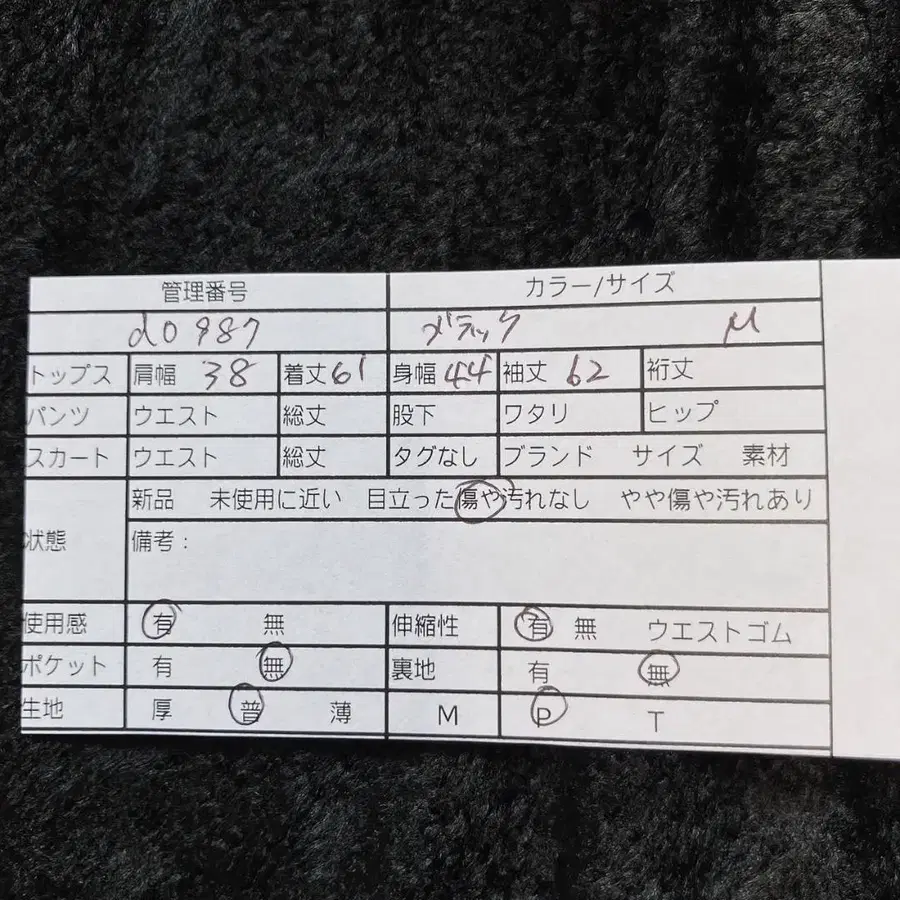 管理番号 カラー/サイズ
d0987 ブラック M
トップス 肩幅 38 着丈 61 身幅 44 袖丈 62 裄丈
パンツ ウエスト 総丈 股下 ワタリ ヒップ
スカート ウエスト 総丈 タグなし ブランド サイズ 素材
新品 未使用に近い 目立った傷や汚れなし やや傷や汚れあり
状態 備考：
使用感 有 無 伸縮性 有 無 ウエストゴム
ポケット 有 無 裏地 有 無
生地 厚 普 薄 M P T